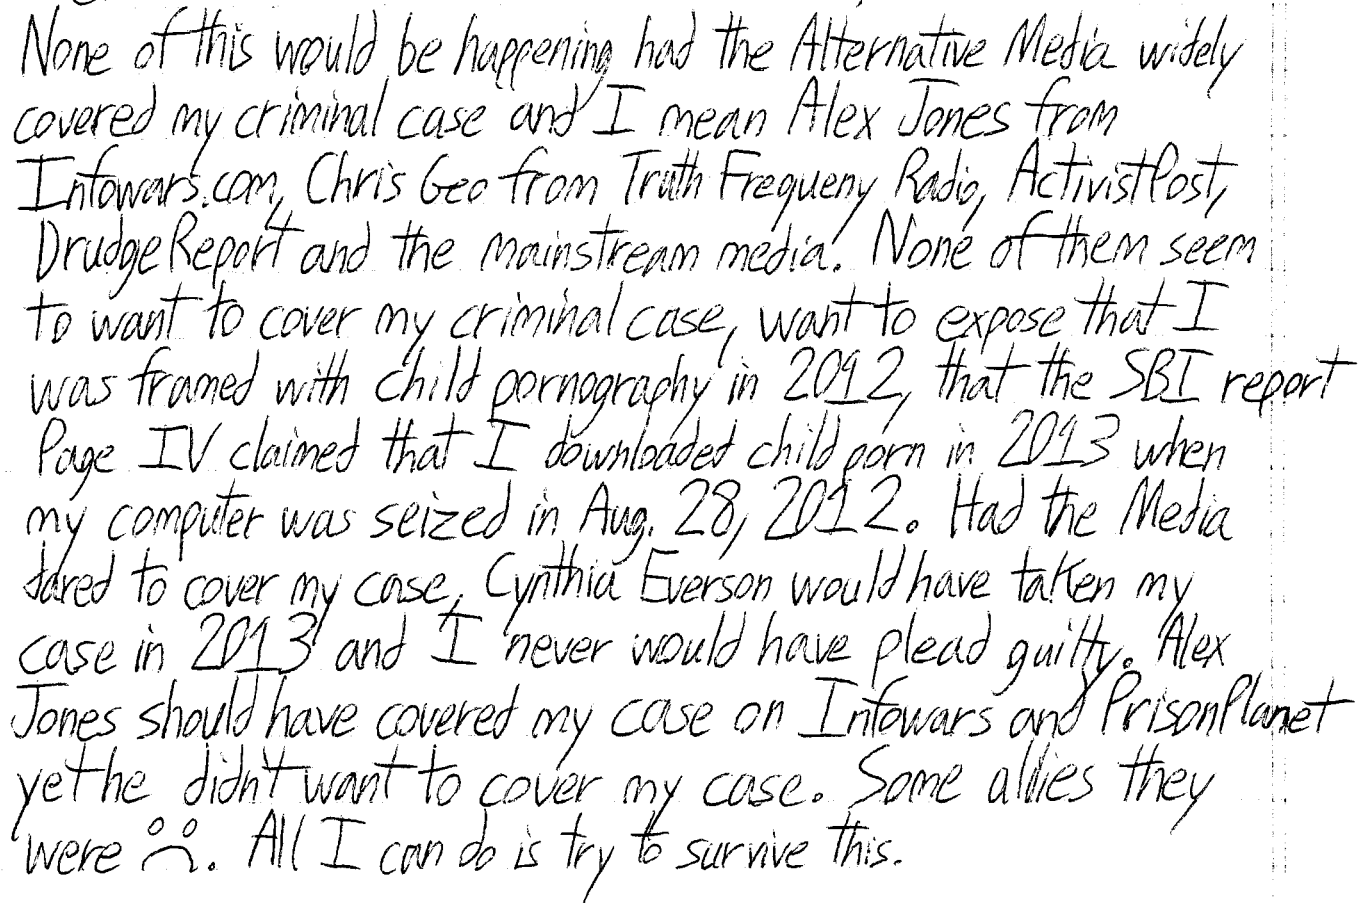 None of this would be happening had the Alternative Media widely
covered my criminal case and I mean Alex Jones from
Infowars.com, Chris Geo from Truth Frequeny Radio, ActivistPost,
DrudgeReport and the mainstream media. None of them seem
to want to cover my criminal case, want to expose that I
was framed with child pornography in 2012, that the SBI report
Page IV claimed that I downloaded child porn in 2013 when
my computer was seized in Aug. 28, 2012. Had the Media
dared to cover my case, Cynthia Everson would have taken my
case in 2013 and I never would have plead guilty. Alex
Jones should have covered my case on Infowars and PrisonPlanet
yet he didn't want to cover my case. Some allies they
were ☹. All I can do is try to survive this.